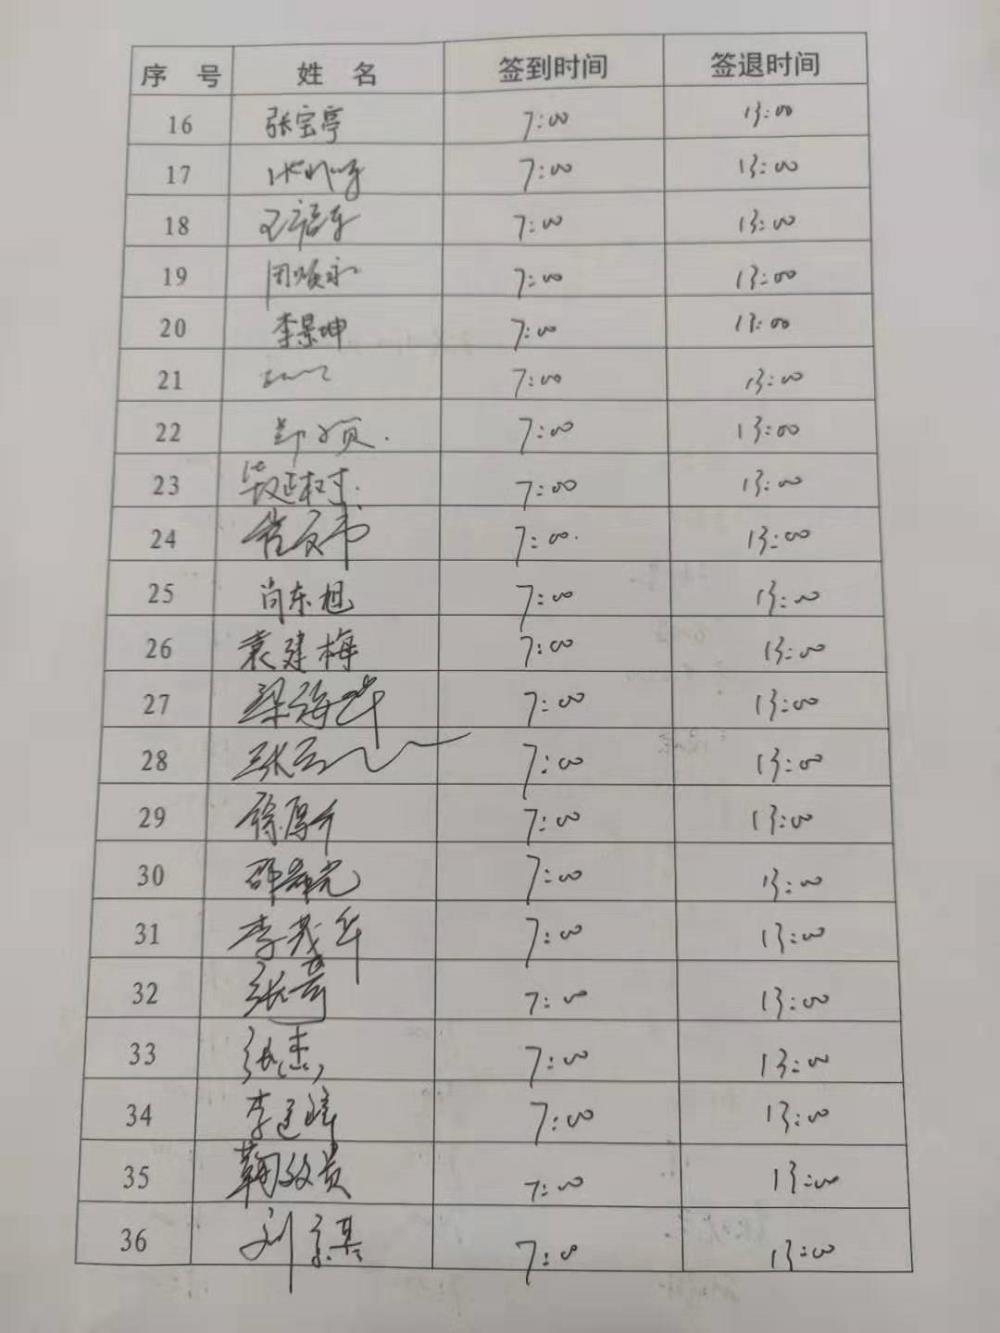 序 号 姓 名 签到时间 签退时间
16 张宝亭 7:00 13:00
17 7:00 13:00
18 7:00 13:00
19 周顺永 7:00 13:00
20 李景坤 7:00 13:00
21 7:00 13:00
22 7:00 13:00
23 7:00 13:00
24 7:00 13:00
25 尚东旭 7:00 13:00
26 袁建梅 7:00 13:00
27 梁海华 7:00 13:00
28 7:00 13:00
29 7:00 13:00
30 7:00 13:00
31 李茂华 7:00 13:00
32 张奇 7:00 13:00
33 张杰 7:00 13:00
34 李建峰 7:00 13:00
35 7:00 13:00
36 7:00 13:00